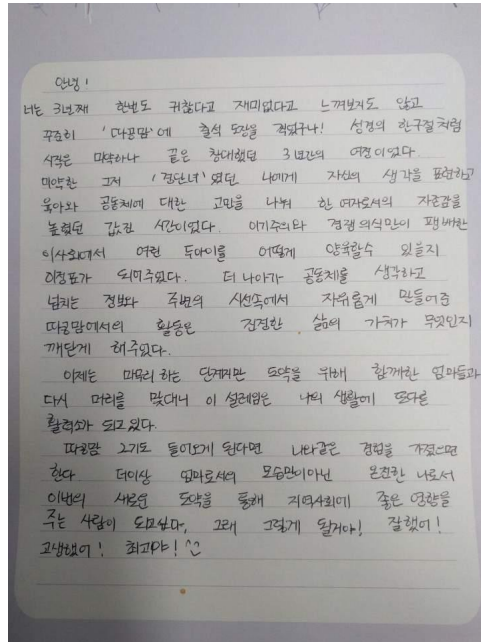 안녕!
너는 3년째 한번도 귀찮다고 재미없다고 느껴보지도 않고
꾸준히 '따공맘'에 출석 도장을 찍었구나! 성경의 한구절처럼
시작은 미약하나 끝은 창대했던 3년간의 여정이었다.
미약한 그저 '경단녀'였던 나에게 자신의 생각을 표현하고
육아와 공동체에 대한 고민을 나눠 한 여자로서의 자존감을
높혔던 값진 시간이었다. 이기주의와 경쟁의식만이 팽배한
이사회에서 어린 두아이를 어떻게 양육할수 있을지
이정표가 되어주었다. 더 나아가 공동체를 생각하고
넘치는 정보와 주변의 시선속에서 자유롭게 만들어준
따공맘에서의 활동은 진정한 삶의 가치가 무엇인지
깨닫게 해주었다.
이제는 마무리 하는 단계지만 도약을 위해 함께한 엄마들과
다시 머리를 맞대니 이 설레임은 나의 생활에 또다른
활력소가 되고 있다.
따공맘 2기도 들어오게 된다면 나와같은 경험을 가졌으면
한다. 더이상 엄마로서의 모습만이아닌 온전한 나로서
이번의 새로운 도약을 통해 지역사회에 좋은 영향을
주는 사람이 되고싶다, 그래 그렇게 될거야! 잘했어!
고생했어! 최고야! ^^